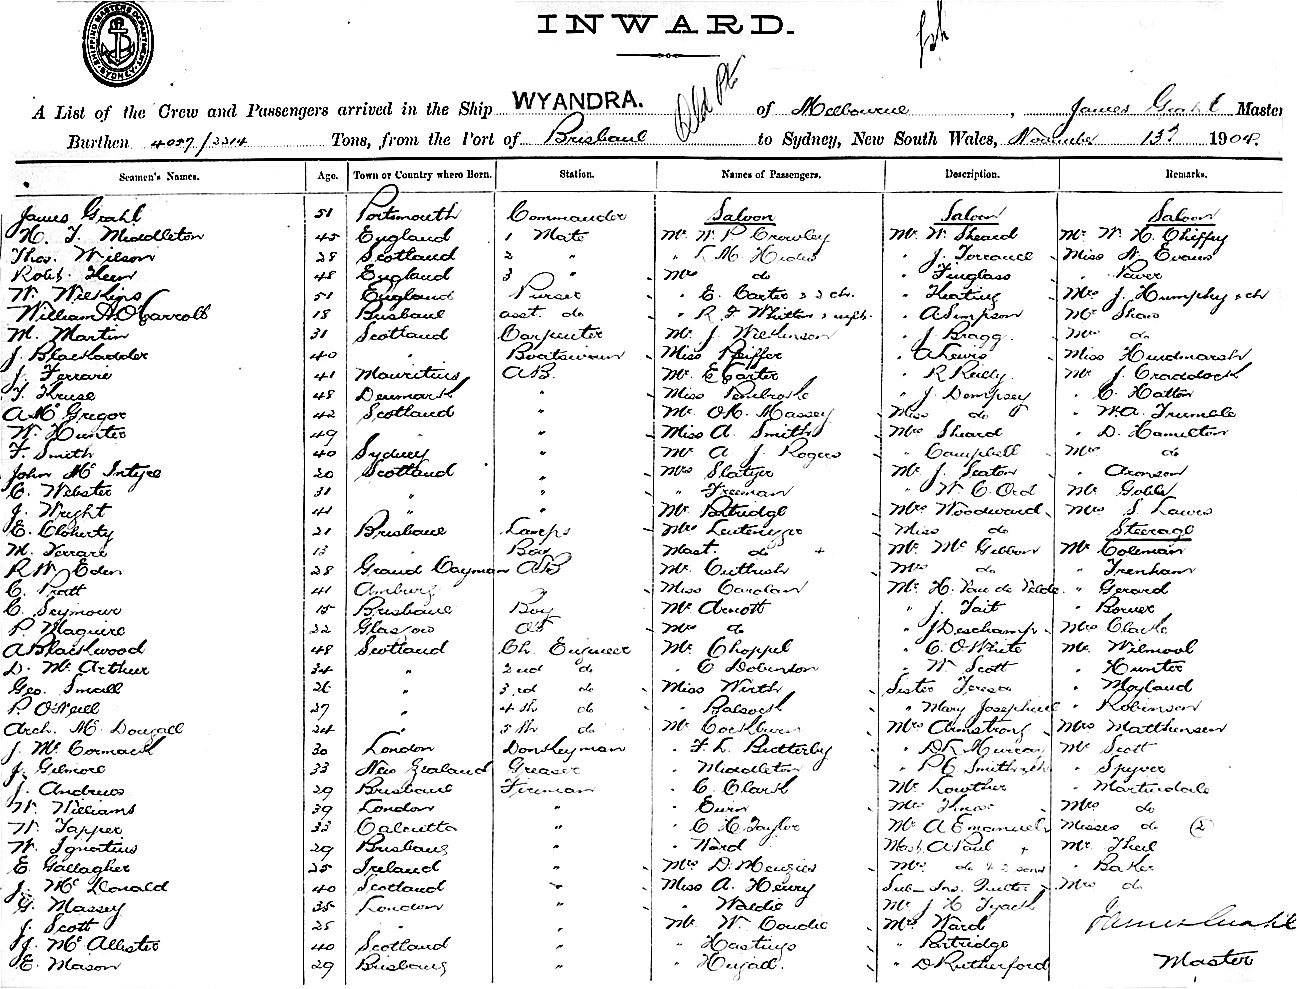 SHIPPING MASTERS DEPARTMENT SYDNEY
INWARD.
A List of the Crew and Passengers arrived in the Ship WYANDRA. of Melbourne, James Grahl Master
Burthen 4057/2314 Tons, from the Port of Brisbane to Sydney, New South Wales, November 13 1904.
Seamen's Names. Age. Town or Country where Born. Station. Names of Passengers. Description. Remarks.
James Grahl 51 Portsmouth Commander Saloon Saloon Saloon
H. T. Middleton 45 England 1 Mate Mr W. P. Crowley Mr W. Sheard Mr W. H. Chiffey
Thos. Wilson 28 Scotland 2 " " R. M. " J. Torrance Miss N. Evans
Robt. Keen 48 England 3 " Mrs do " Finglass "
W. Wilskins 51 England Purser " E. Carter & 2 ch. " Keating Mrs J. Humphy & ch
William A O'Carroll 18 Brisbane asst. do " R. F. Whitten " A Simpson Mr Shaw
M. Martin 31 Scotland Carpenter Mr J. Wilkinson " J. Bragg. Mrs do
J. Blackadder 40 " Boatswain Miss Pfeiffer " A Lewis Miss Hindmarsh
J. Ferrari 41 Mauritius A.B. Mr E Carter " R Reilly Mr J. Craddock
Y. Kruse 48 Denmark " Miss Pembroke " J. Dempsey " C. Hatton
A. McGregor 42 Scotland " Mr O.R. Massey Miss do " W.A. Trumble
W. Hunter 49 " " Miss A. Smith Mrs Sheard " D. Hamilton
F. Smith 40 Sydney " Mr A. J. Rogers " Campbell Mrs do
John McIntyre 20 Scotland " Mrs Slatyer Mr J. Seaton " Aronson
C. Webster 31 " " " Freeman " W. C. Ord Mr
J. Wright 41 " " Mr Partridge Mrs Woodward Mrs S. Lewis
E. Cloherty 21 Brisbane Lamps Mrs Miss do Steerage
M. Ferrari 13 " Boy Mast. do Mr McGibbon Mr Coleman
R. W. Eden 28 Grand Cayman AB Mr Cuthush Mrs do " Trenham
C. Pratt 41 " Miss Carolan Mr H. Van de Velde " Gerard
C. Seymour 15 Brisbane Boy Mr Arnott " J. Tait "
P. Maguire 22 Glasgow Mrs do " J Deschamp Mrs Clarke
A Blackwood 48 Scotland Ch. Engineer Mr Choppel " C. O'White Mr
D. McArthur 34 " 2nd do " C Dobinson " W. Scott " Hunter
Geo. Small 26 " 3rd do Miss Wirth Sister Teresa " Moyland
P. O'Neill 27 " 4th do " " Mary Josephine " Robinson
Arch. McDougall 24 " 5th do Mr Cockburn Mrs Armstrong Mrs Matthewson
J. McCormack 30 London Donkeyman " F. L. Butterby " Dr Mr Scott
J. Gilmore 33 New Zealand Greaser " Middleton " P. C. Smith " Spyver
J. Andrews 29 Brisbane Fireman " C. Clark Mr Lowther " Martindale
W. Williams 39 London " " Mrs Mrs do
W. Tapper 33 Calcutta " " C. H. Taylor Mr A Emanuel Misses do (2)
W. Ignatius 29 Brisbane " " Ward Mast. A Paul Mr Theil
E. Gallagher 25 Ireland " Mrs D. Menzies Mrs do & 2 sons " Baker
J. McDonald 40 Scotland " Miss A. Henry Sub-Ins. Mrs do
G. Massey 35 London " " Waldie Mr J. H. Tyack
J. Scott 25 " " Mr W. Coudie Mrs Ward James Grahl
J. McAllister 40 Scotland " " Hastings " Partridge
E. Mason 29 Brisbane " " " D Rutherford Master